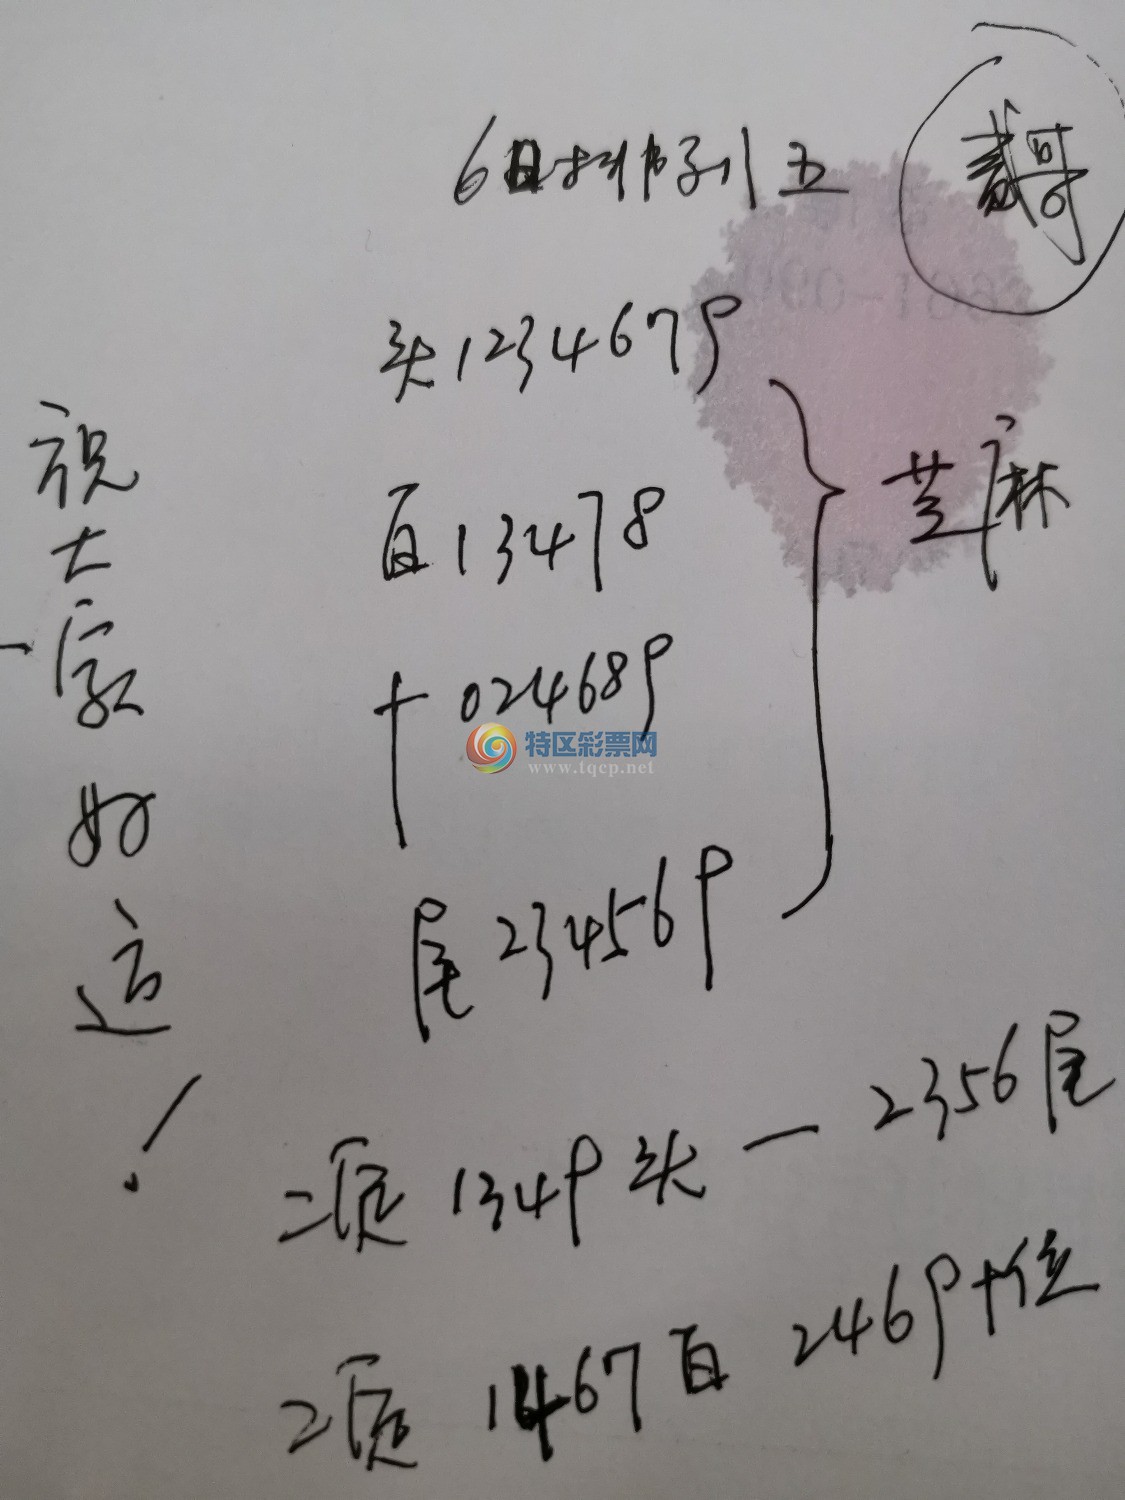 6日排列五
哥
头1234679
百13478
十024689
尾234569
芝麻
祝大家好运!
特区彩票网
www.tqcp.net
二顶 1349头一2356尾
二顶 1467百 2469十位